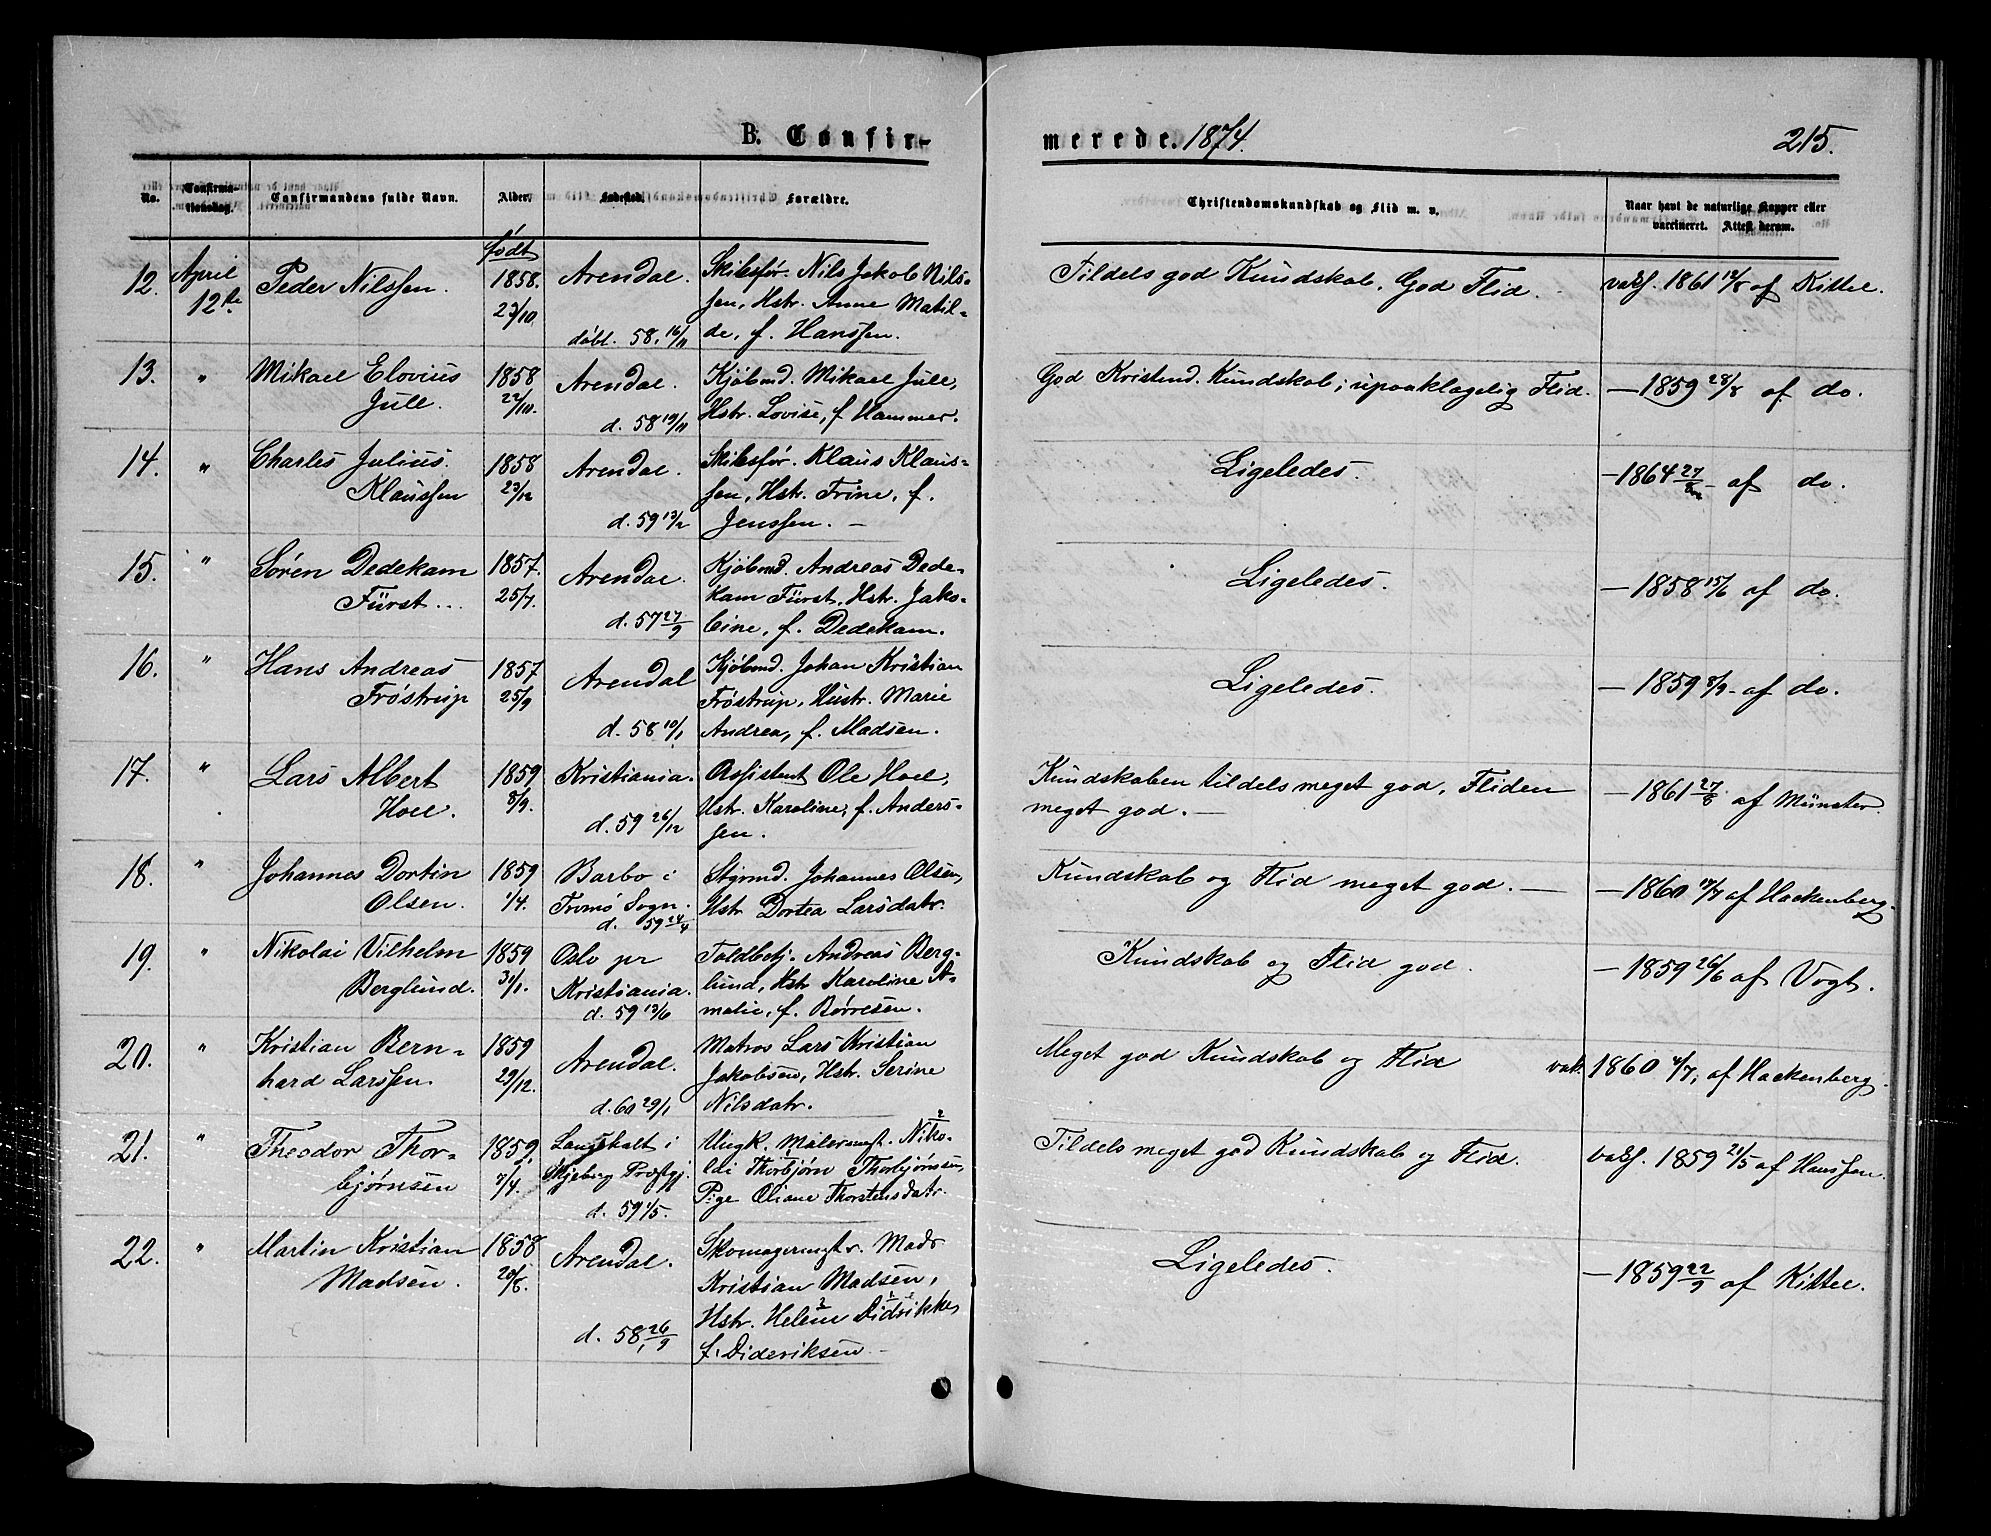 B. Confir-
merede. 1874.
215.
No.
Confirma-
tionsdag.
Confirmandens fulde Navn.
Alder.
Fødested.
Forældre.
Christendomskundskab og Flid m. v.
Naar havt de naturlige Kopper eller
vaccineret. Attest derom.
født
12. April Peder Nilssen. 1858. Arendal. Skibsfør. Nils Jakob Nils- Tildels god Kundskab. God Flid. vaks. 1861 12/8 af Kittel.
12te 23/10. sen, Hstr. Anne Matil-
døbt. 58, 16/11 de, f. Hanssen.
13. " Mikael Elovius 1858 Arendal. Kjøbmd. Mikael Juell, God Kristend. Kundskab; upaaklagelig Flid. — 1859 28/8 af do.
Juell. 22/10. d. 58 19/11 Hstr. Lovise, f. Hammer.
14. " Charles Julius 1858 Arendal. Skibsfør. Klaus Klaus- Ligeledes. — 1864 27/8 - af do.
Klaussen 23/12 sen, Hstr. Trine, f.
d. 59 13/2 Jenssen. —
15. " Søren Dedekam 1857. Arendal. Kjøbmd. Andreas Dede- Ligeledes. — 1858 15/6 af do.
Fürst... 25/7. kam Fürst, Hstr. Jako-
d. 57 27/9 bine, f. Dedekam.
16. " Hans Andreas 1857 Arendal Kjøbmd. Johan Kristian Ligeledes. — 1859 8/9 - af do.
Frøstrup 25/9 Frøstrup, Hustr. Marie
d. 58 10/1 Andrea, f. Madsen.
17. " Lars Albert 1859 Kristiania. Assistent Ole Hoel, Kundskaben tildels meget god, Fliden — 1861 27/8 af Münster.
Hoel. 8/9. d. 59 26/12 Hstr. Karoline, f. Anders- meget god. —
sen.
18. " Johannes Dortin 1859 Barbo i Styrmd. Johannes Olsen, Kundskab og Flid meget god. — — 1860 17/7 af Hackenberg.
Olsen. 1/4. Tromø Sogn. Hstr. Dortea Larsdatr.
d. 59 24/4
19. " Nikolai Vilhelm 1859 Oslo pr Toldbetj. Andreas Berg- Kundskab og Flid god. — 1859 26/6 af Vogt.
Berglund. 31/1. Kristiania. lund, Hstr Karoline A-
d. 59 13/6 malie, f. Børresen.
20. " Kristian Bern- 1859 Arendal. Matros Lars Kristian Meget god Kundskab og Flid vak. 1860 4/7, af Hackenberg.
hard Larssen. 29/12. Jakobsen, Hstr. Serine
d. 60 29/1 Nilsdatr.
21. " Theodor Thor- 1859, Langholt i Ungk. Malersvd. Niko- Tildels meget god Kundskab og Flid. vaks. 1859 21/5 af Hanssen.
bjørnsen 7/4. Skjeberg Præstgj. lai Thorbjørn Thorbjørnsen,
d. 59 1/5. Pige Oliane Thorstensdatr.
22. " Martin Kristian 1858 Arendal. Skomagermstr. Mads Ligeledes. — 1859 22/9 af Kittel.
Madsen. 20/8. Kristian Madsen,
Hstr. Helene Didrikke,
d. 58, 26/9 f. Dideriksen